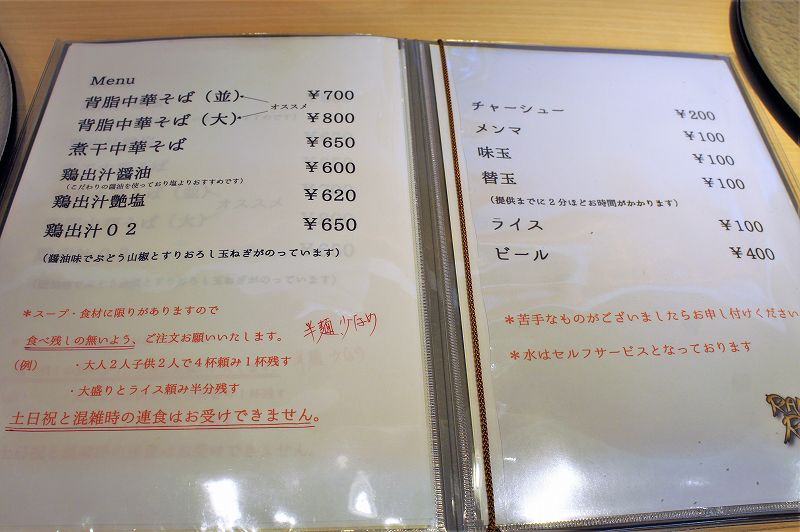 Menu
背脂中華そば（並） ¥700
オススメ
背脂中華そば（大） ¥800
煮干中華そば ¥650
鶏出汁醤油 ¥600
（こだわりの醤油を使っており塩よりおすすめです）
鶏出汁艶塩 ¥620
鶏出汁０２ ¥650
（醤油味でぶどう山椒とすりおろし玉ねぎがのっています）
＊スープ・食材に限りがありますので
食べ残しの無いよう、ご注文お願いいたします。 半麺、少なめ
（例） ・大人２人子供２人で４杯頼み１杯残す
・大盛りとライス頼み半分残す
土日祝と混雑時の連食はお受けできません。
チャーシュー ¥200
メンマ ¥100
味玉 ¥100
替玉 ¥100
（提供までに２分ほどお時間がかかります）
ライス ¥100
ビール ¥400
＊苦手なものがございましたらお申し付けください
＊水はセルフサービスとなっております